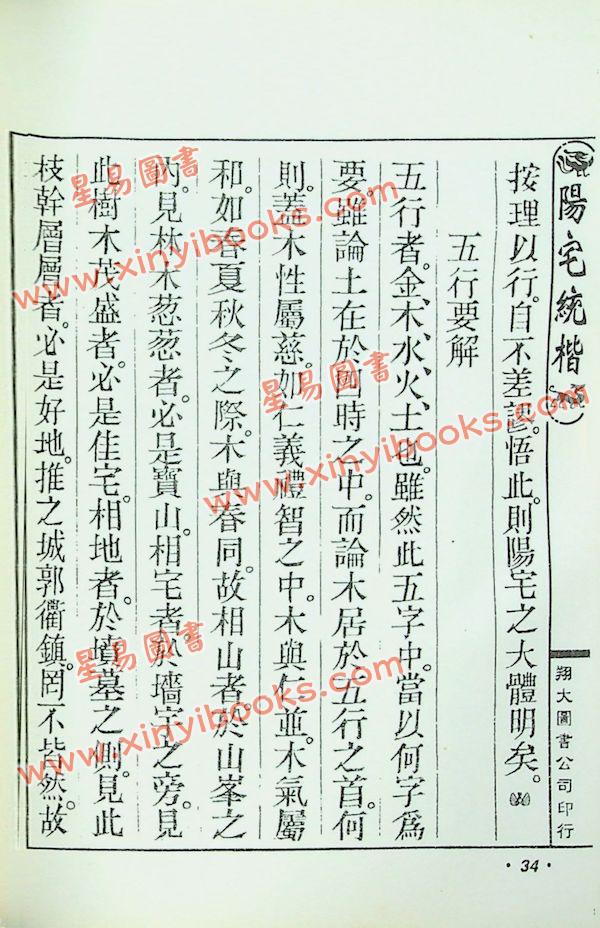 陽宅統楷
翔大圖書公司印行
· 34 ·
按理以行。自不差誤。悟此。則陽宅之大體明矣。
五行要解
五行者。金、木、水、火、土也。雖然此五字中。當以何字爲
要。雖論土在於四時之中。而論木居於五行之首。何
則。蓋木性屬慈。如仁義禮智之中。木與仁並。木氣屬
和。如春夏秋冬之際。木與春同。故相山者。於山峯之
內。見林木葱葱者。必是寶山。相宅者。於墻宇之旁。見
此樹木茂盛者。必是住宅。相地者。於墳墓之側。見此
枝幹層層者。必是好地。推之城郭衢鎮。罔不皆然。故
星易圖書
www.xinyibooks.com
星易圖書
www.xinyibooks.com
星易圖書
www.xinyibooks.com